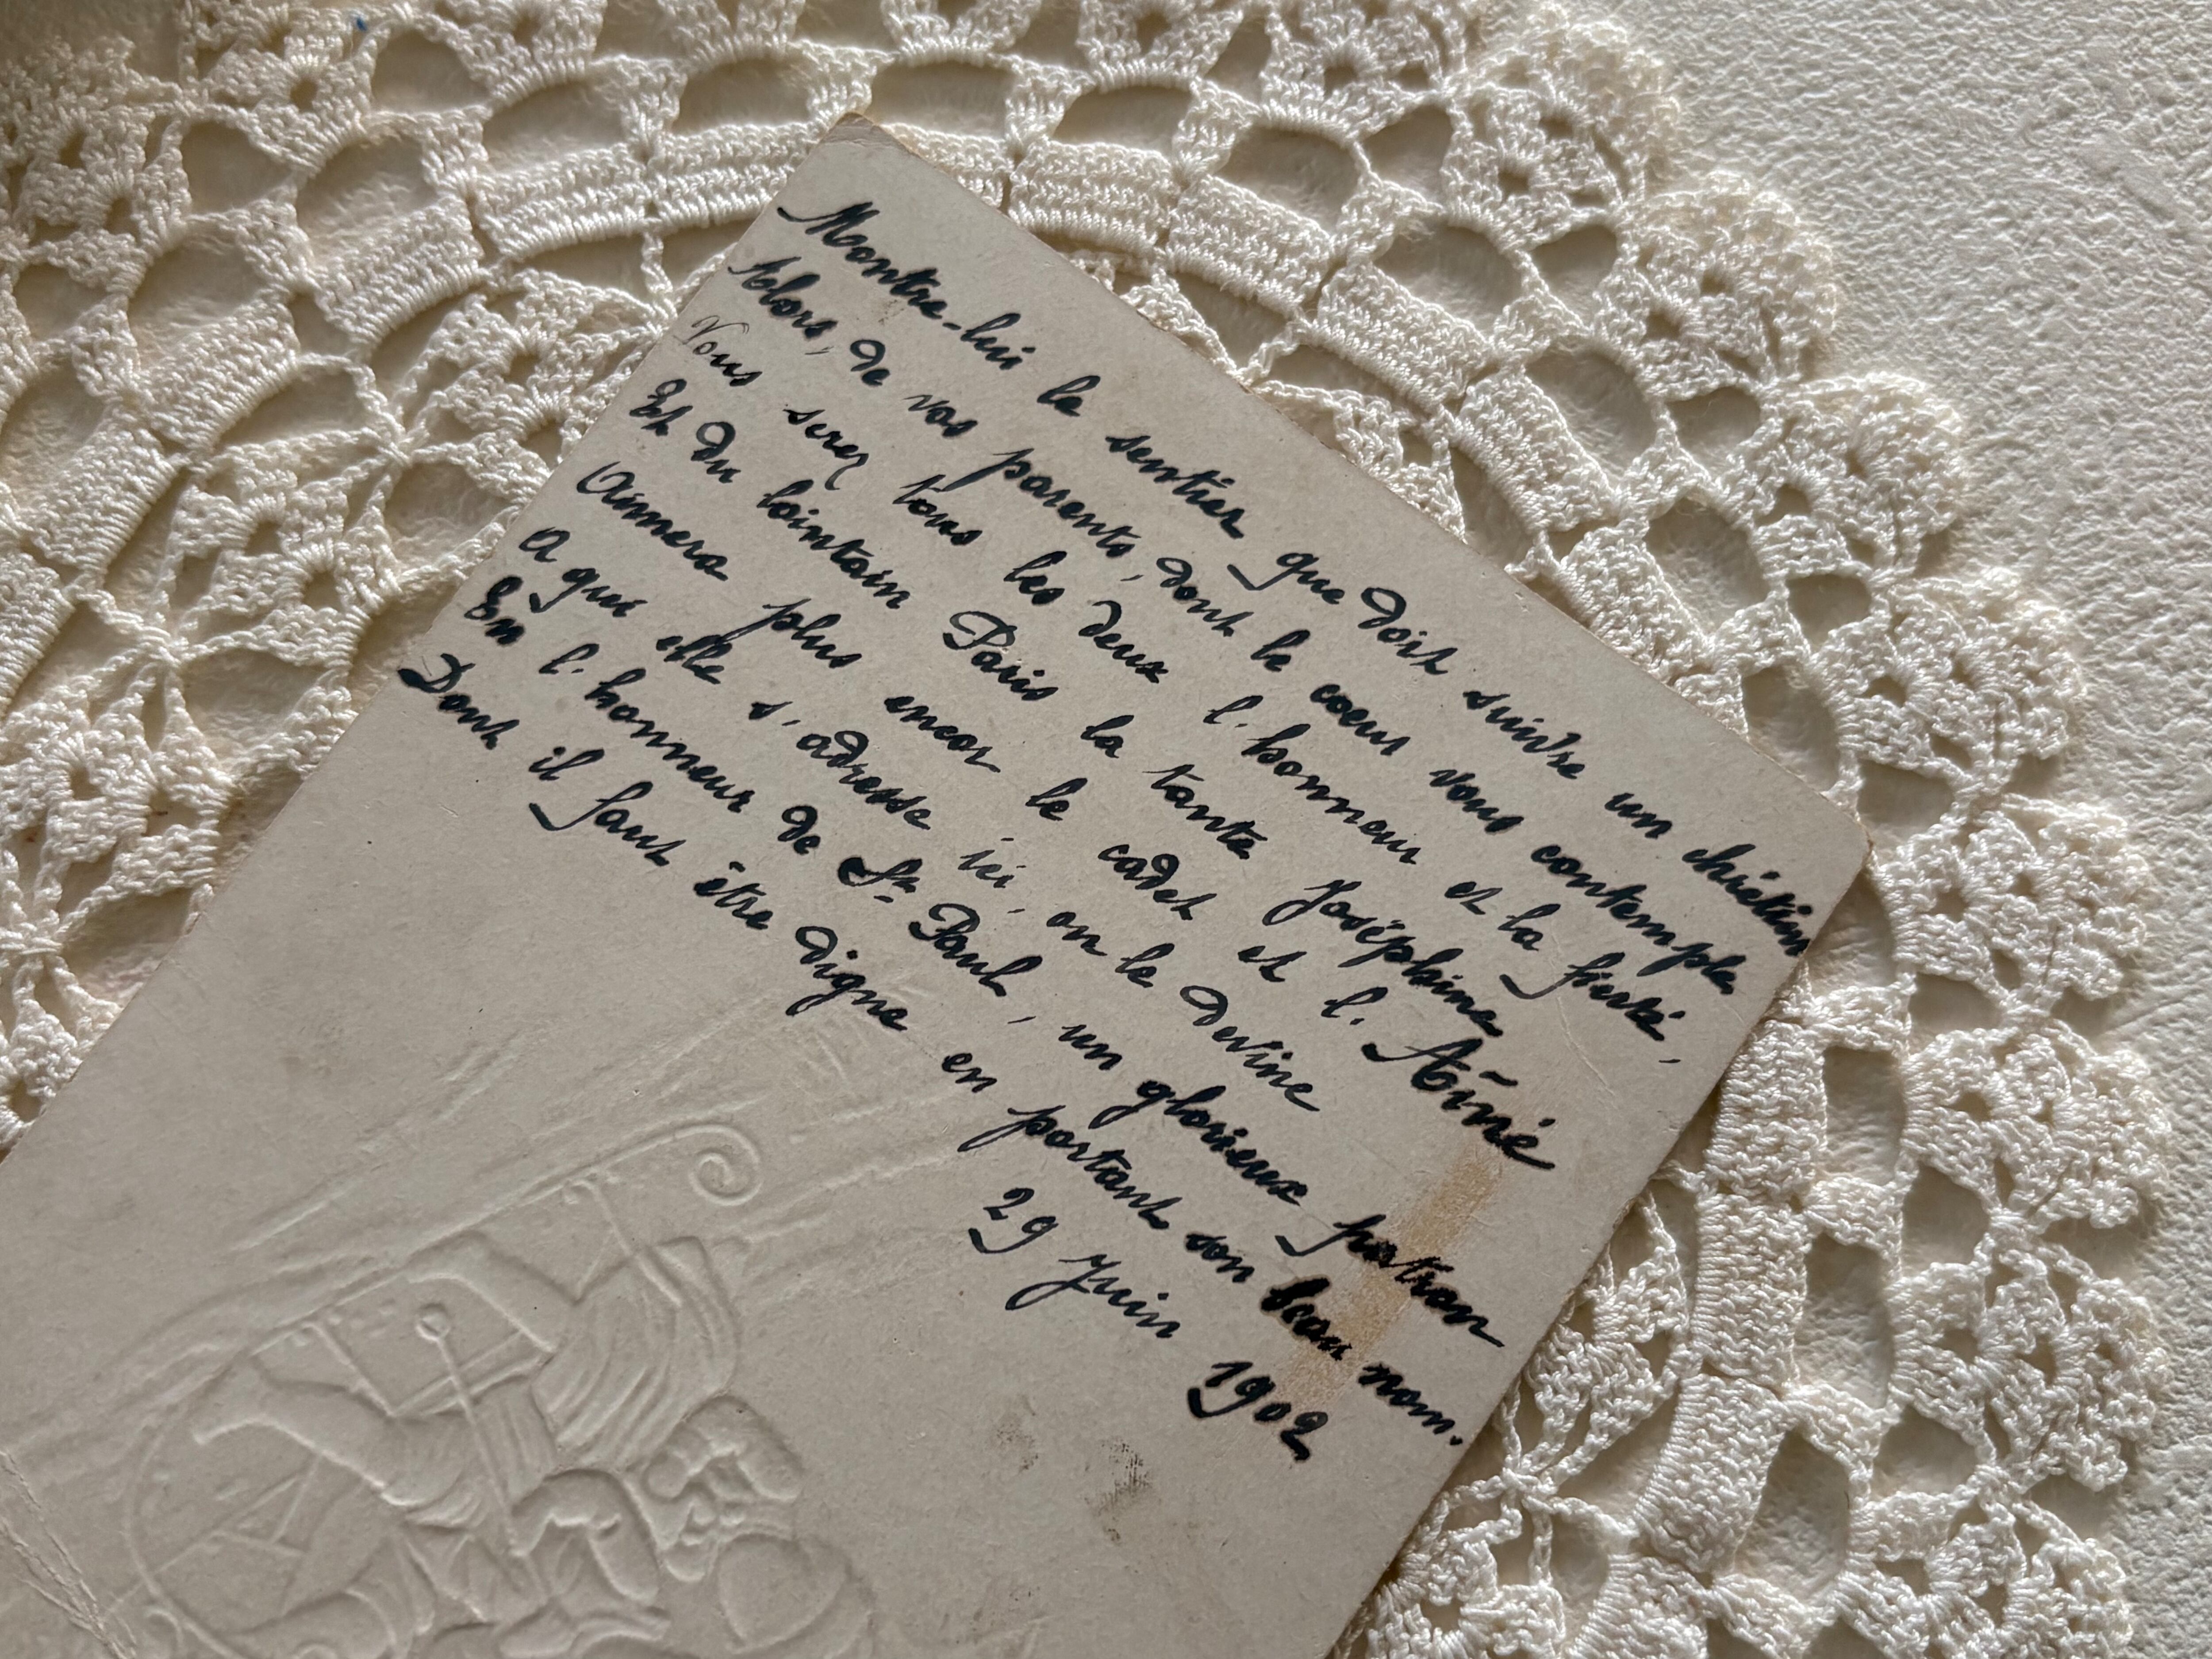 Montre-lui le sentier que doit suivre un chrétien
Alors, de vos parents, dont le cœur vous contemple
Vous serez tous les deux l'honneur et la fierté,
Et du lointain Paris la tante Joséphine
Aimera plus encor le cadet et l'Aîné
A qui elle s'adresse ici, on le devine
En l'honneur de St Paul, un glorieux patron
Dont il faut être digne en portant son beau nom.
29 Juin 1902